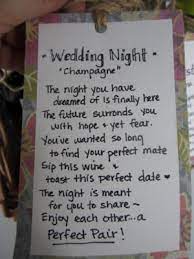 - Wedding Night -
"Champagne"
The night you have
dreamed of is finally here
The future surronds you
with hope & yet fear.
You've wanted so long
to find your perfect mate
Sip this wine &
toast this perfect date ♥
The night is meant
for you to share ~
Enjoy each other...a
Perfect Pair!